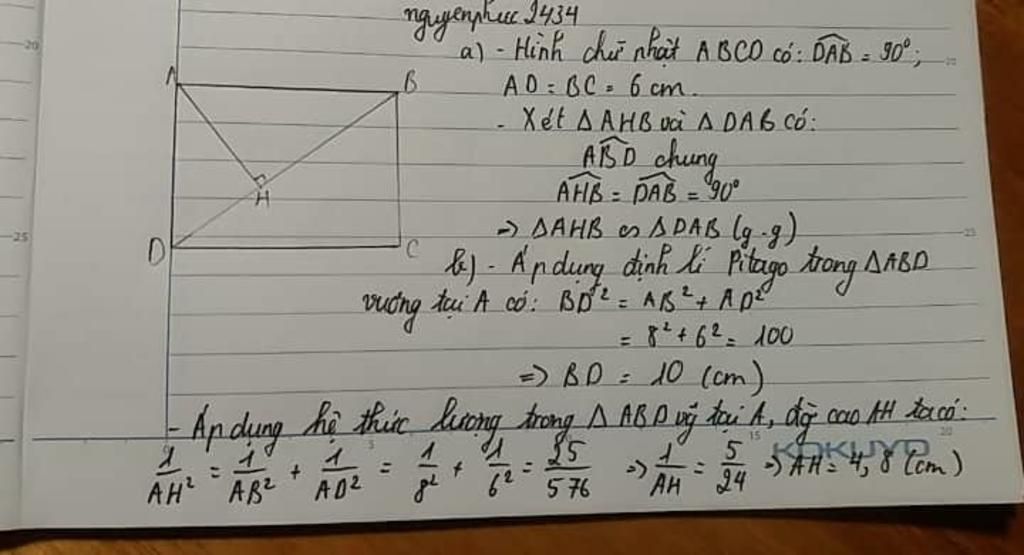 nguyenphuc2434
a) - Hình chữ nhật ABCD có: DAB = 90°;
AD = BC = 6 cm.
- Xét ΔAHB và ΔDAB có:
ABD chung
AHB = DAB = 90°
=> ΔAHB ∽ ΔDAB (g-g)
b) - Áp dụng định lí Pitago trong ΔABD
vuông tại A có: BD² = AB² + AD²
= 8² + 6² = 100
=> BD = 10 (cm)
- Áp dụng hệ thức lượng trong ΔABD vg tại A, đg cao AH ta có:
1/AH² = 1/AB² + 1/AD² = 1/8² + 1/6² = 25/576 => 1/AH = 5/24 => AH = 4,8 (cm)
A
B
H
D
C
20
25
25
5
15
20
KOKUYO